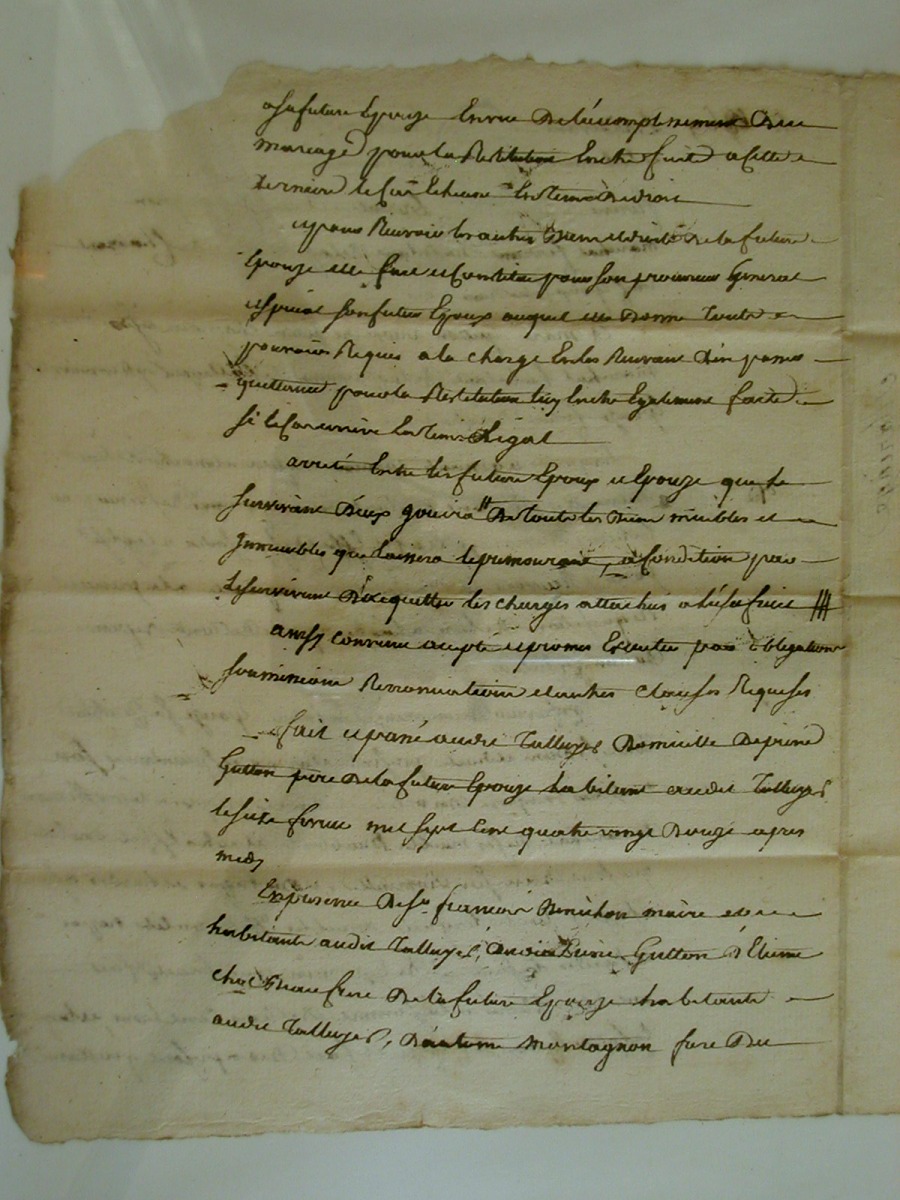 a sa future Epouze En vue De l'accomplinement Du
mariage pour la Restitution En etre faite a cette
derniere le Cas Echeant En tems De droit
et pour Recevoir les autres Biens et droits De la future
Epouze elle fait et Constitue pour son procureur General
et special son futur Epoux auquel elle Donne toute
pouvoirs Requis a la charge En les Recevant D'en passer
quittance pour la Restitution luy En etre Egalement faite
si le Cas arrive En tems Légal
arreté Entre les future Epoux et Epouze que le
survivant D'eux jouira De toute les Bien meubles et
jmmeubles que laissera le premourant, a Condition par
le survivant D'acquitter les charges attachés a
ainsy convenu accepté et promis Executer par obligations
soumissions Renonciations et autres Clauses Requises
fait et passé audit Talluyes Domicille De pierre
Gutton pere De la future Epouze habitant audit Talluyes
le six fevrier mil sept Cent quatre vingt Douze apres
midy
En presence De Sr francois Benichon maire
habitant audit Talluyes, Gutton D'Etienne
Beaufrere De la future Epouze habitants
audit Talluyes, D'antoine Montagnon frere Du